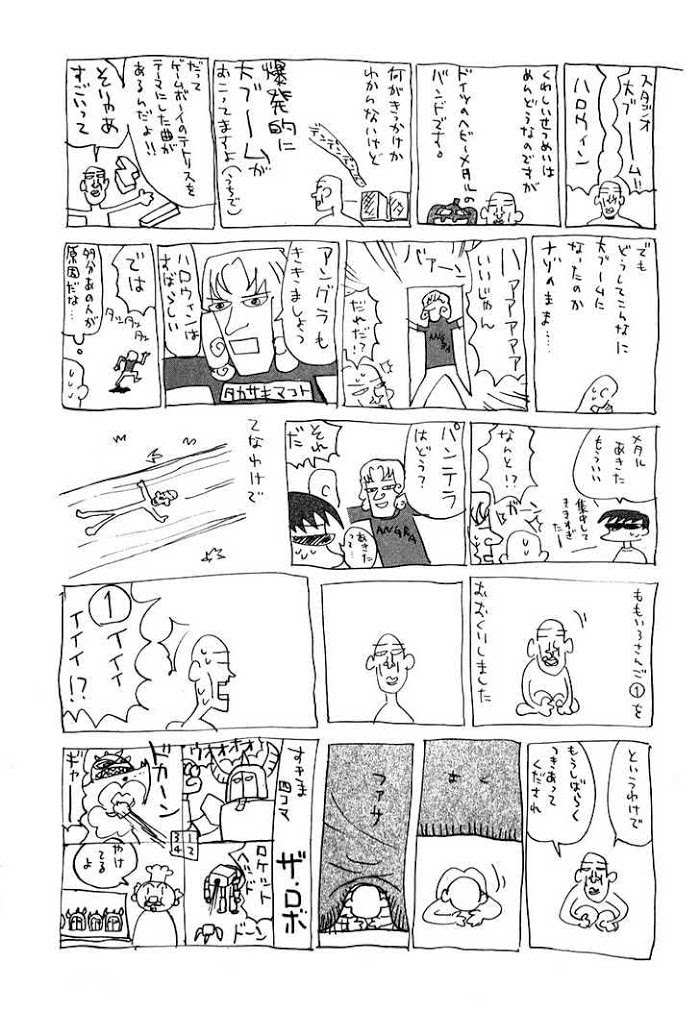 スタジオ
大ブーム!!
ハロウィン
くわしいせつめいは
めんどうなのですが
ドイツのヘビーメタルの
バンドです。
何がきっかけか
わからないけど
デンデンデン
爆発的に
大ブームが
おこってますよ(うちで)
だって
ゲームボーイのテトリスを
テーマにした曲が
あるんだよ!!
そりゃあ
すごいって
でも
どうしてこんなに
大ブームに
なったのか
ナゾのまま…
ハァアアアアア
いいじゃん
バァーン
だれだ!?
ANGRA
アングラも
ききましょう
ハロウィンは
すばらしい
タカサキマコト
では
タッタッタッ
多分あの人が
原因だな…
メタル
あきた
もういい
集中して
ききすぎ
たー
なんと!?
ガーン
パンテラ
はどう?
ANGRA
あきた
って…
それ
だ
てなわけで
ももいろさんご①を
おおくりしました
①
イイイ
イイイ!?
というわけで
もうしばらく
つきあって
くだされ
ファサ
すきま
四コマ
ザ・ロボ
ウオォオォ
ロケット
ヘッド
ドーン
ドカーン
ギャー
1
2
3
4
やけ
てる
よ